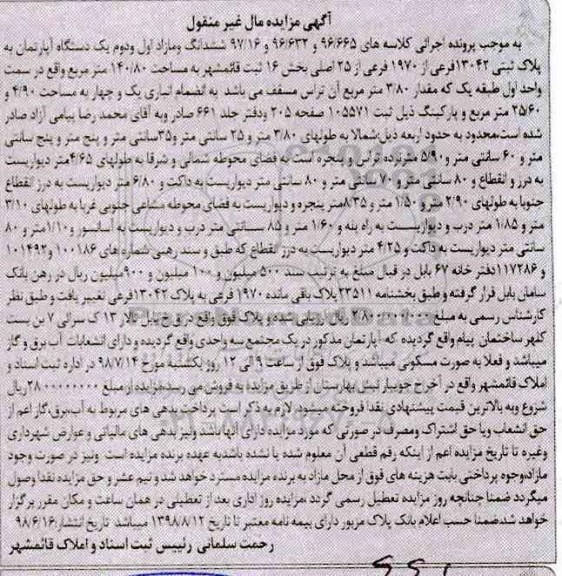 آگهی مزایده مال غیر منقول
به موجب پرونده اجرائی کلاسه های ۹۶/۶۶۵ و ۹۶/۶۳۲ و ۹۷/۱۶ ششدانگ ومازاد اول ودوم یک دستگاه آپارتمان به
پلاک ثبتی ۱۳۰۴۲فرعی از ۱۹۷۰ فرعی از ۲۵ اصلی بخش ۱۶ ثبت قائمشهر به مساحت ۱۴۰/۸۰ متر مربع واقع در سمت
واحد اول طبقه یک که مقدار ۳/۸۰ متر مربع آن تراس مسقف می باشد به انضمام انباری یک و چهار به مساحت ۴/۹۰ و
۲۵/۶۰ متر مربع و پارکینگ ذیل ثبت ۱۰۵۵۷۱ صفحه ۲۰۵ ودفتر جلد ۶۶۱ صادر وبه آقای محمد رضا پیامی آزاد صادر
شده است.محدود به حدود اربعه ذیل:شمالا به طولهای ۳/۸۰ متر و ۲۵ سانتی متر و۳۵سانتی متر و پنج متر و پنج سانتی
متر و ۶۰ سانتی متر و۵/۹۰ مترنرده تراس و پنجره است به فضای محوطه شمالی و شرقا به طولهای ۴/۶۵متر دیواریست
به درز و انقطاع و ۸۰ سانتی متر و ۷۰ سانتی متر و ۸۰ سانتی متر دیواریست به داکت و ۶/۸۰ متر دیواریست به درز انقطاع
جنوبا به طولهای ۲/۹۰ متر و ۱/۵۰ متر و ۸/۳۵متر پنجره و دیواریست به فضای محوطه مشاعی جنوبی غربا به طولهای ۳/۱۰
متر و ۱/۸۵ متر درب و دیواریست به راه پله و ۱/۶۰ متر و ۸۵ سانتی متر درب و دیواریست به آسانسور و۱/۱۰متر و ۸۰
سانتی متر دیواریست به داکت و ۴/۲۵ متر دیواریست به درز انقطاع که طبق و سند رهنی شماره های ۱۰۰۱۸۶ و۱۰۱۴۹۲
و ۱۱۷۲۸۶دفتر خانه ۶۷ بابل در قبال مبلغ به ترتیب سند ۵۰۰ میلیون و ۱۰۰ میلیون و ۹۰۰میلیون ریال در رهن بانک
سامان بابل قرار گرفته و طبق بخشنامه ۲۳۵۱۱ پلاک باقی مانده ۱۹۷۰ فرعی به پلاک ۱۳۰۴۲فرعی تغییر یافت و طبق نظر
کارشناس رسمی به مبلغ ۲۸۰۰۰۰۰۰۰۰ ریال ارزیابی شده و پلاک فوق واقع در خ بابل تالار ۱۳ ک سرائی ۷ بن بست
گلهر ساختمان پیام واقع گردیده که آپارتمان مذکور در یک مجتمع سه واحدی واقع گردیده و دارای انشعابات آب برق و گاز
میباشد و فعلا به صورت مسکونی میباشد و پلاک فوق از ساعت ۹ الی ۱۲ روز یکشنبه مورخ ۹۸/۷/۱۴ در اداره ثبت اسناد و
املاک قائمشهر واقع در آخر خ جویبار نبش بهارستان از طریق مزایده به فروش می رسد.مزایده از مبلغ ۲۸۰۰۰۰۰۰۰۰ریال
شروع وبه بالاترین قیمت پیشنهادی نقدا فروخته میشود. لازم به ذکر است پرداخت بدهی های مربوط به آب،برق،گاز اعم از
حق انشعاب ویا حق اشتراک ومصرف در صورتی که مورد مزایده دارای آنها باشد ونیز بدهی های مالیاتی و عوارض شهرداری
وغیره تا تاریخ مزایده اعم از اینکه رقم قطعی آن معلوم شده یا نشده باشدبه عهده برنده مزایده است ونیز در صورت وجود
مازاد،وجوه پرداختی بابت هزینه های فوق از محل مازاد به برنده مزایده مسترد خواهد شد و نیم عشر و حق مزایده نقدا وصول
میگردد ضمنا چنانچه روز مزایده تعطیل رسمی گردد ،مزایده روز اداری بعد از تعطیلی در همان ساعت و مکان مقرر برگزار
خواهد شد.ضمنا حسب اعلام بانک پلاک مزبور دارای بیمه نامه معتبر تا تاریخ ۱۳۹۸/۸/۱۲ میباشد تاریخ انتشار:۹۸/۶/۱۶
رحمت سلمانی رئیس ثبت اسناد و املاک قائمشهر